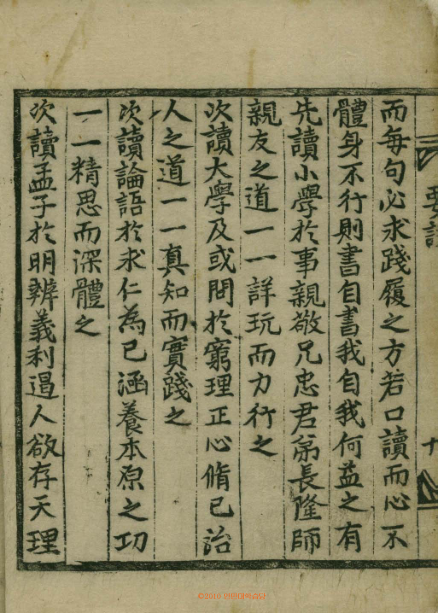 而每句必求踐履之方若口讀而心不
體身不行則書自書我自我何益之有
先讀小學於事親敬兄忠君弟長隆師
親友之道一一詳玩而力行之
次讀大學及或問於窮理正心脩己治
人之道一一真知而實踐之
次讀論語於求仁為己涵養本原之功
一一精思而深體之
次讀孟子於明辨義利遏人欲存天理